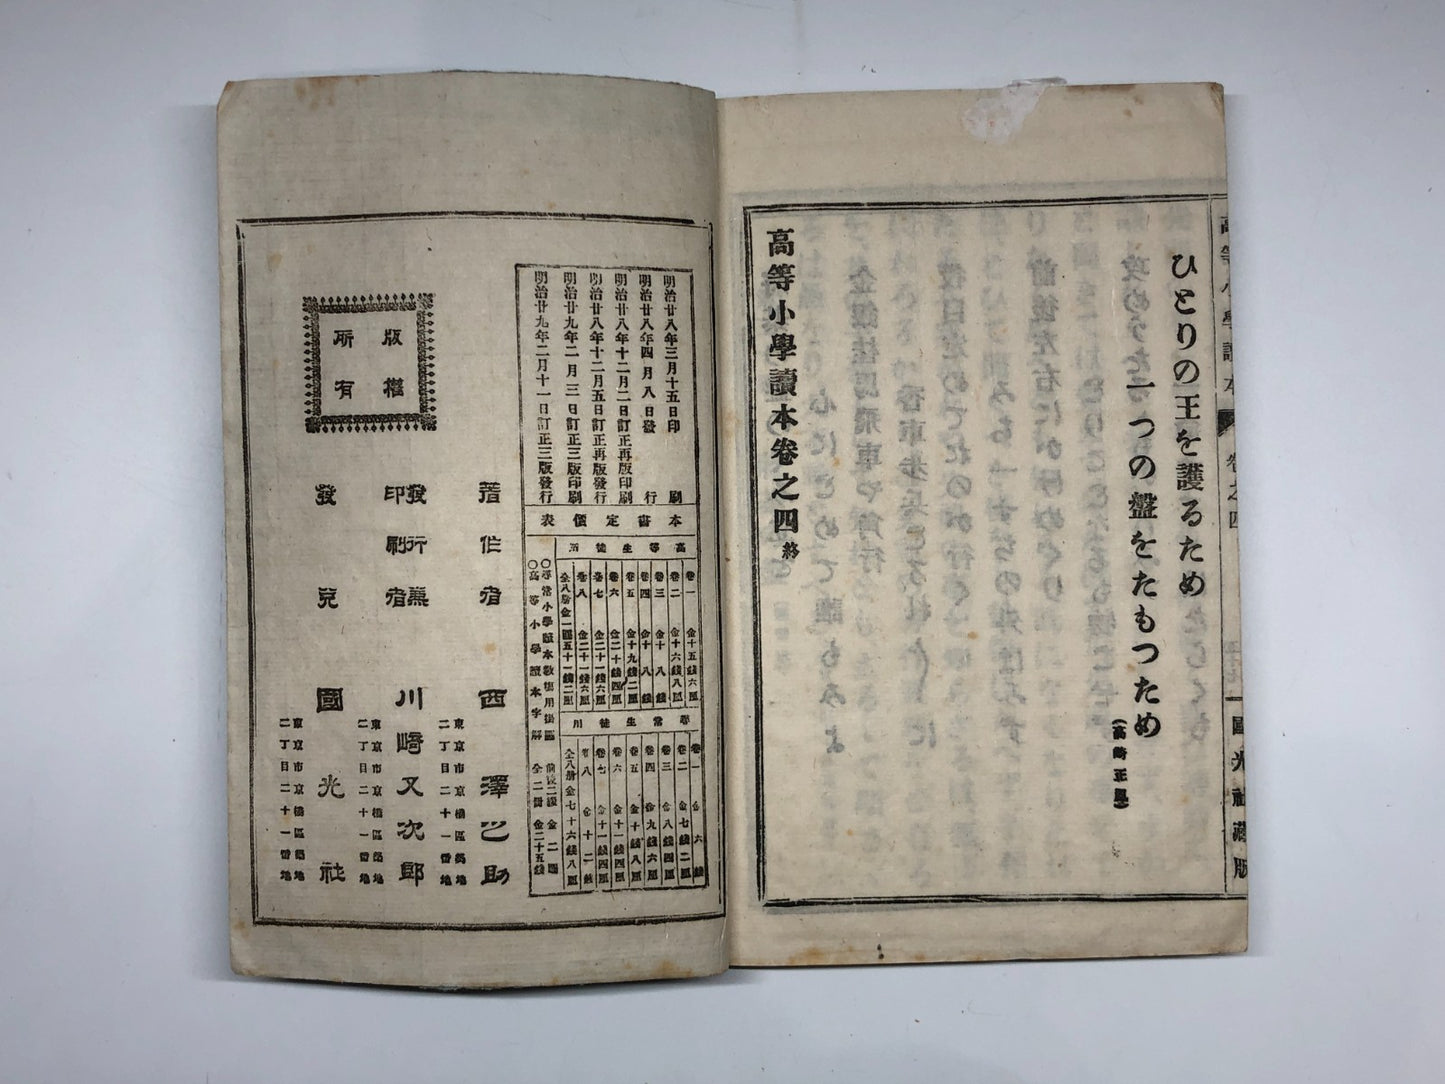 高等小學讀本
卷之四
國光社藏版
ひとりの王を護るため
一つの盤をたもつため
（高崎正風）
高等小學讀本卷之四終
明治廿八年三月十五日印刷
明治廿八年四月八日發行
明治廿八年十二月二日訂正再版印刷
明治廿八年十二月五日訂正再版發行
明治廿九年二月三日訂正三版印刷
明治廿九年二月十一日訂正三版發行
本書定價表
高等生徒用
卷一 金十五錢六厘
卷二 金十六錢八厘
卷三 金十八錢
卷四 金十八錢
卷五 金十九錢二厘
卷六 金二十錢四厘
卷七 金二十一錢六厘
卷八 金二十一錢六厘
全八册金一圓五十一錢二厘
尋常生徒用
卷一 金六錢
卷二 金七錢二厘
卷三 金八錢四厘
卷四 金九錢六厘
卷五 金十錢八厘
卷六 金十一錢四厘
卷七 金十一錢四厘
卷八 金十二錢
全八册金七十六錢八厘
○尋常小學讀本教授用掛圖 前後二級 金二圓
○高等小學讀本字解 全二册 金二十五錢
著作者 西澤之助
東京市京橋區築地
二丁目二十一番地
發行兼
印刷者 川崎又次郎
東京市京橋區築地
二丁目二十一番地
發兌 國光社
東京市京橋區築地
二丁目二十一番地
版權
所有